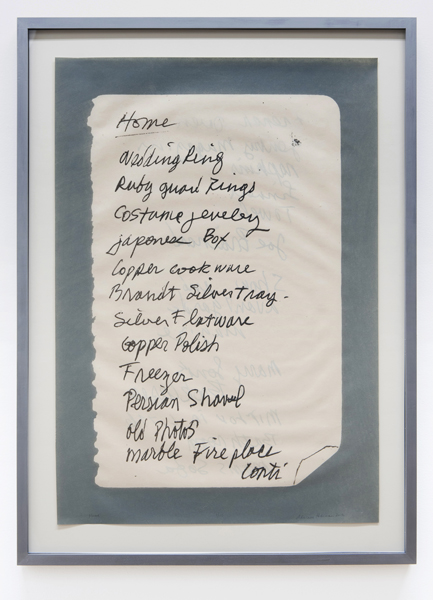 Home
Wedding Ring
Ruby guard Rings
Costume jevelry
japonex Box
Copper cookware
Brandt Silvertray.
Silver Flatware
Copper Polish
Freezer
Persian Shawl
old Photos
marble Fireplace
Conti